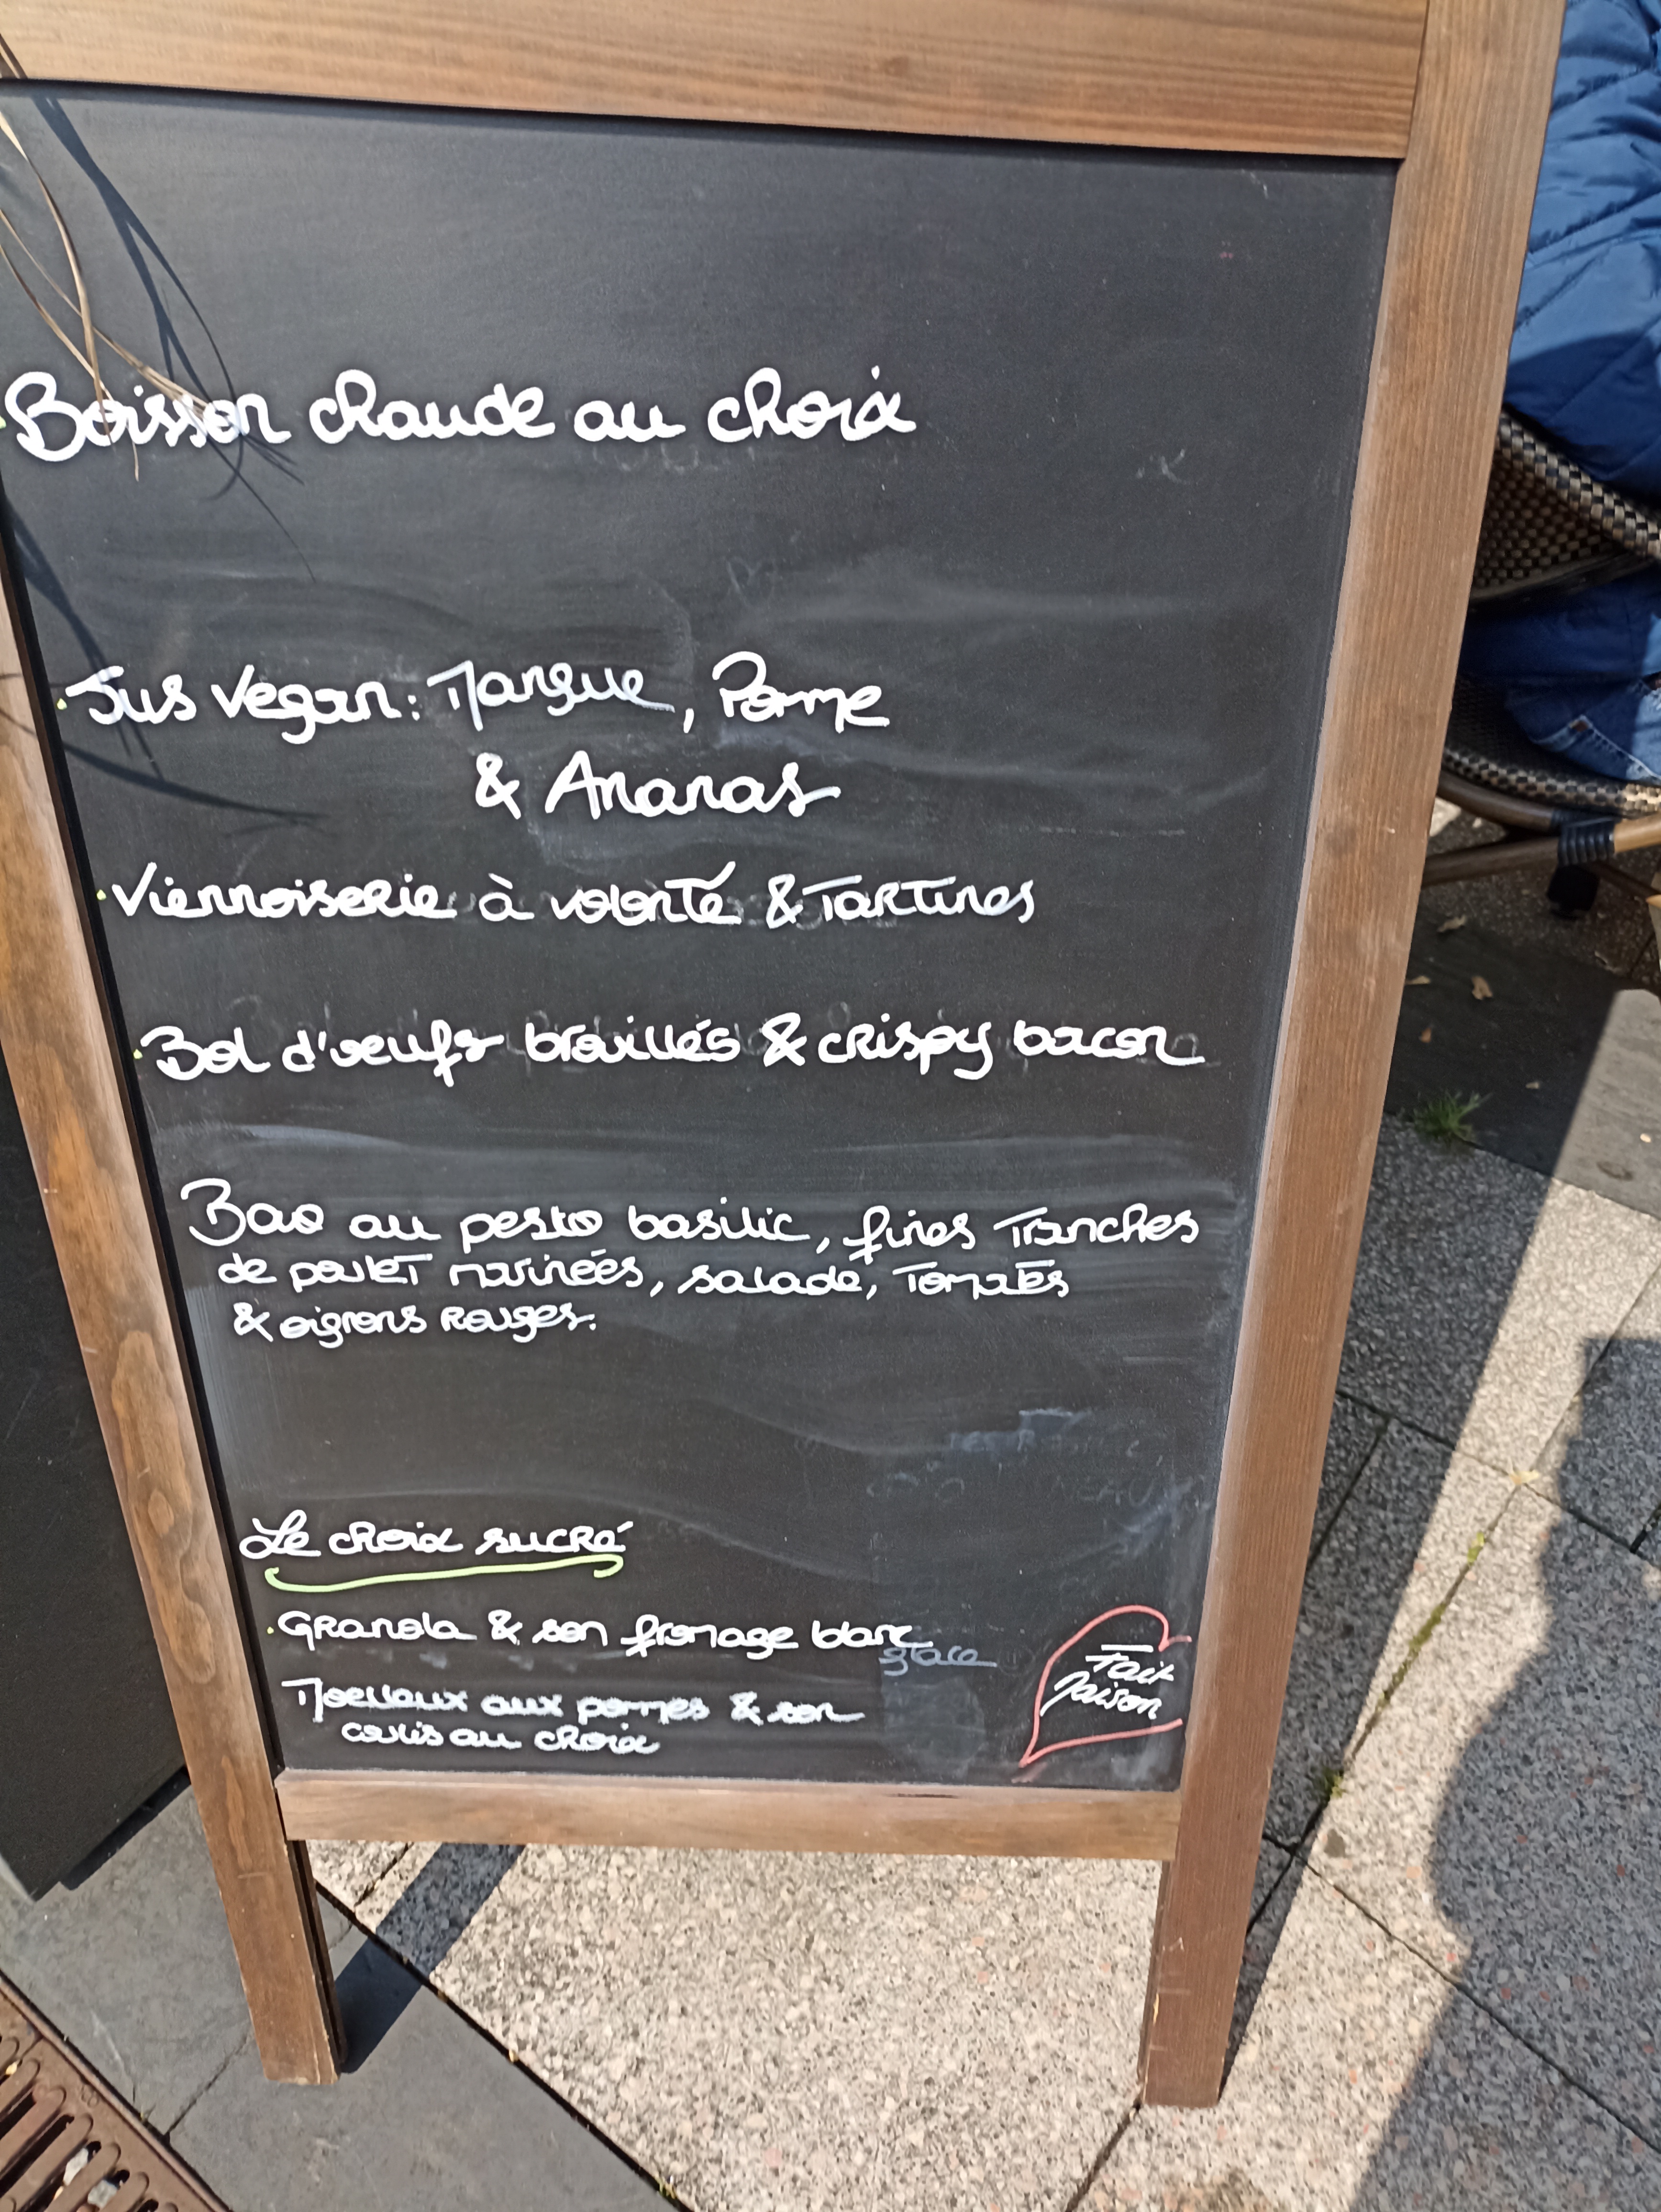 Boisson chaude au choix
. Jus Vegan : Mangue, Pomme
& Ananas
. Viennoiserie à volonté & Tartines
. Bol d'oeufs brouillés & crispy bacon
Bao au pesto basilic, fines Tranches
de poulet marinées, salade, Tomates
& oignons Rouges.
Le choix sucré
. Granola & son fromage blanc
glace
Moelleux aux pommes & son
coulis au choix
Fait
Maison